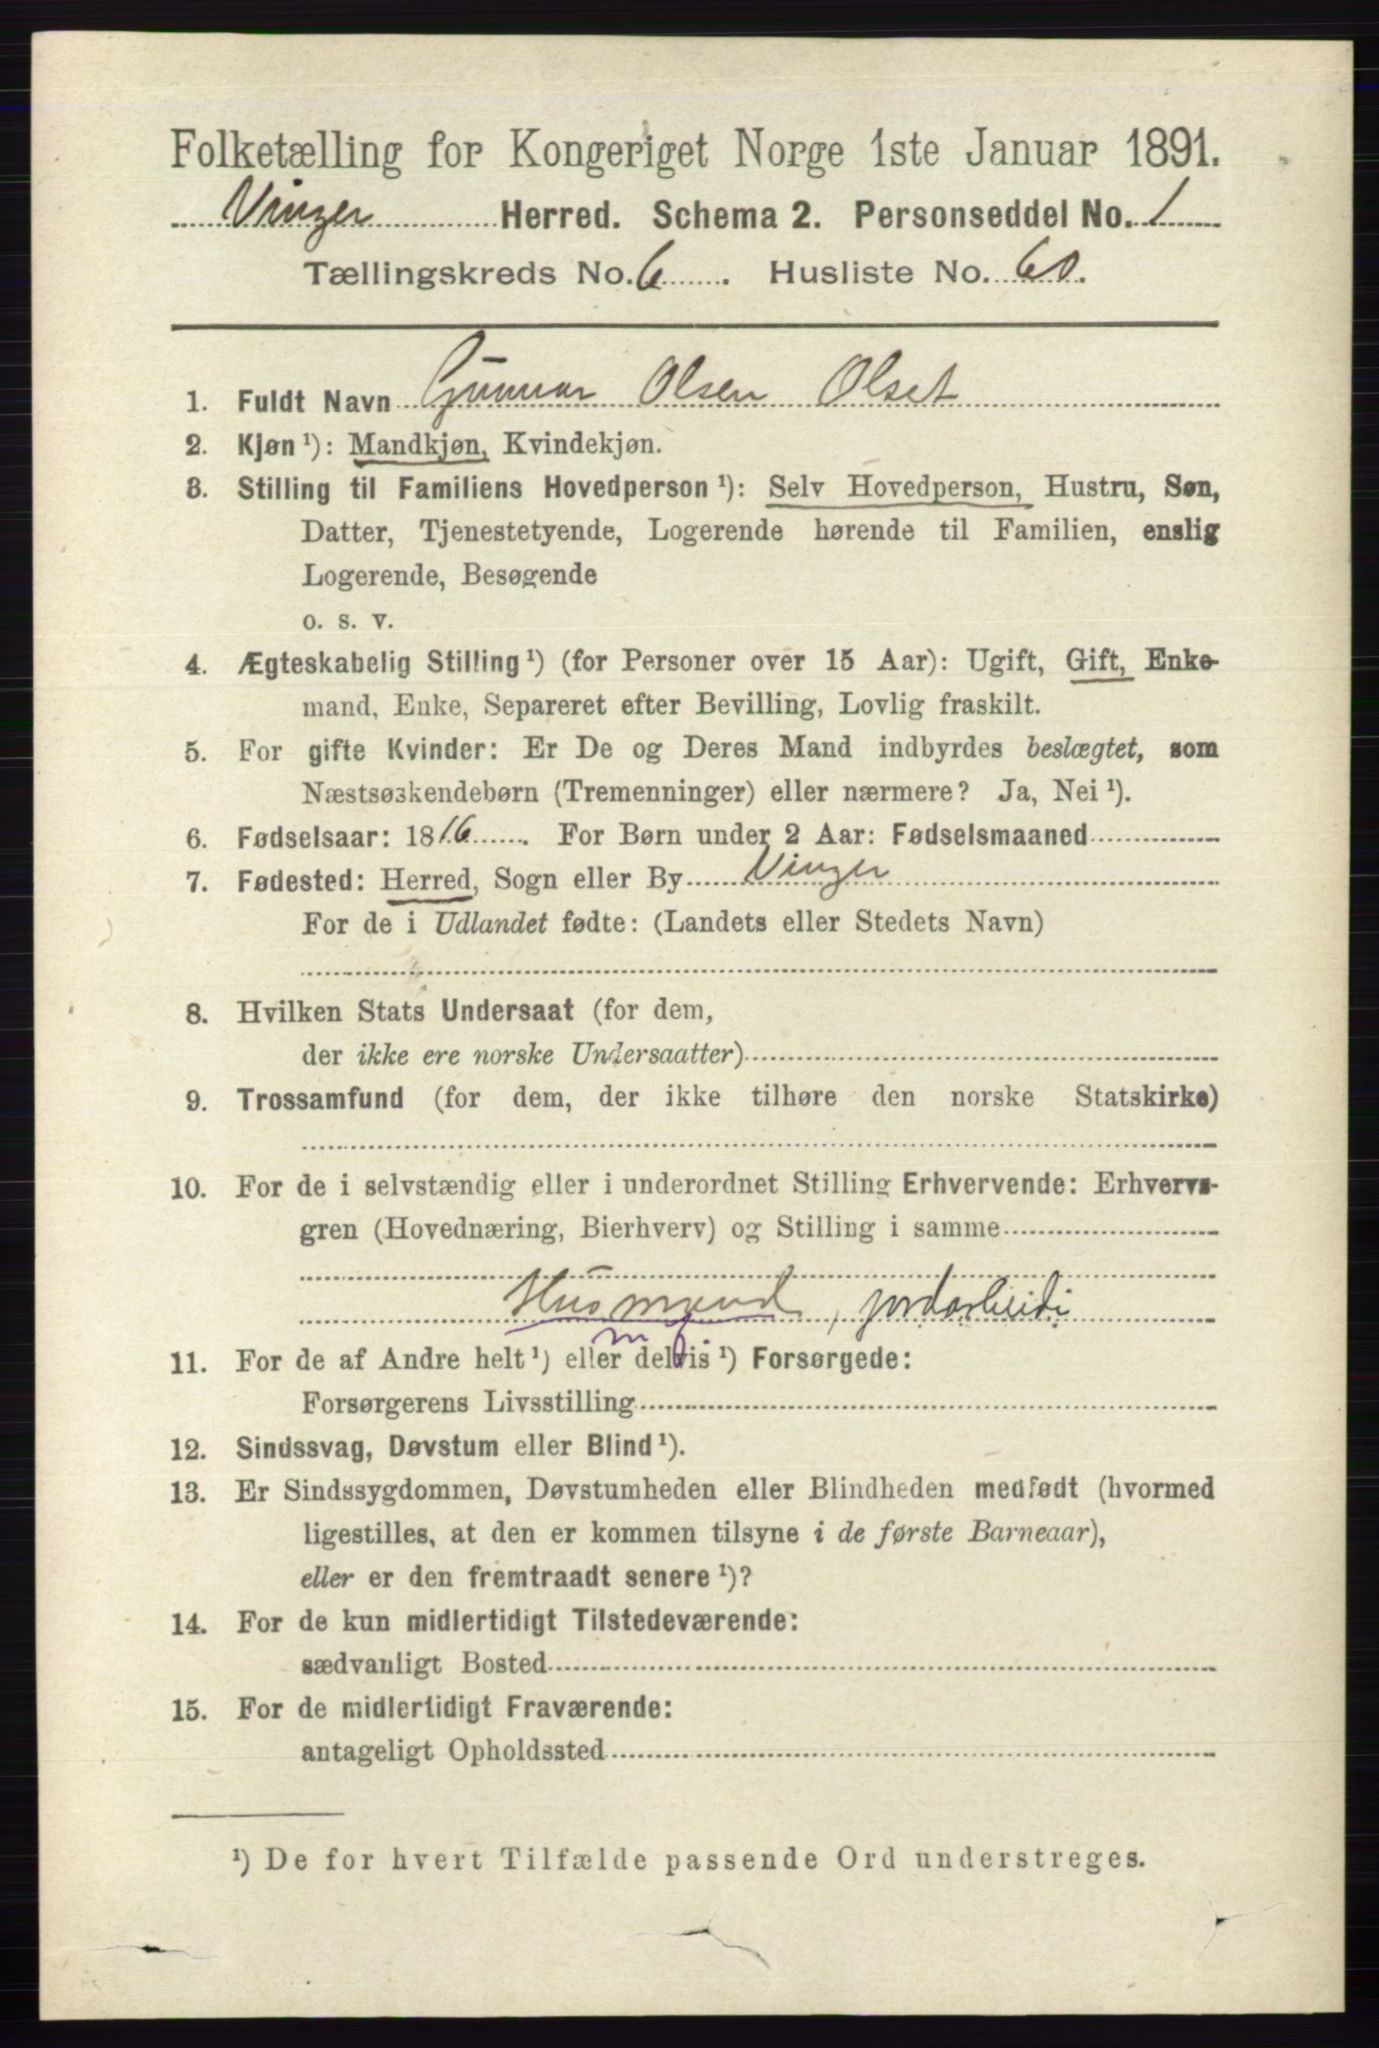 Folketælling for Kongeriget Norge 1ste Januar 1891.
Vinger Herred. Schema 2. Personseddel No. 1
Tællingskreds No. 6. Husliste No. 60.
1. Fuldt Navn Gunnar Olsen Olset
2. Kjøn ¹): Mandkjøn, Kvindekjøn.
3. Stilling til Familiens Hovedperson ¹): Selv Hovedperson, Hustru, Søn,
Datter, Tjenestetyende, Logerende hørende til Familien, enslig
Logerende, Besøgende
o. s. v.
4. Ægteskabelig Stilling ¹) (for Personer over 15 Aar): Ugift, Gift, Enke-
mand, Enke, Separeret efter Bevilling, Lovlig fraskilt.
5. For gifte Kvinder: Er De og Deres Mand indbyrdes beslægtet, som
Næstsøskendebørn (Tremenninger) eller nærmere? Ja, Nei ¹).
6. Fødselsaar: 1816. For Børn under 2 Aar: Fødselsmaaned
7. Fødested: Herred, Sogn eller By Vinger
For de i Udlandet fødte: (Landets eller Stedets Navn)
8. Hvilken Stats Undersaat (for dem,
der ikke ere norske Undersaatter)
9. Trossamfund (for dem, der ikke tilhøre den norske Statskirke)
10. For de i selvstændig eller i underordnet Stilling Erhvervende: Erhvervs-
gren (Hovednæring, Bierhverv) og Stilling i samme
Husmand, jordarbeide
11. For de af Andre helt ¹) eller delvis ¹) Forsørgede:
Forsørgerens Livsstilling
12. Sindssvag, Døvstum eller Blind ¹).
13. Er Sindssygdommen, Døvstumheden eller Blindheden medfødt (hvormed
ligestilles, at den er kommen tilsyne i de første Barneaar),
eller er den fremtraadt senere ¹)?
14. For de kun midlertidigt Tilstedeværende:
sædvanligt Bosted
15. For de midlertidigt Fraværende:
antageligt Opholdssted
¹) De for hvert Tilfælde passende Ord understreges.